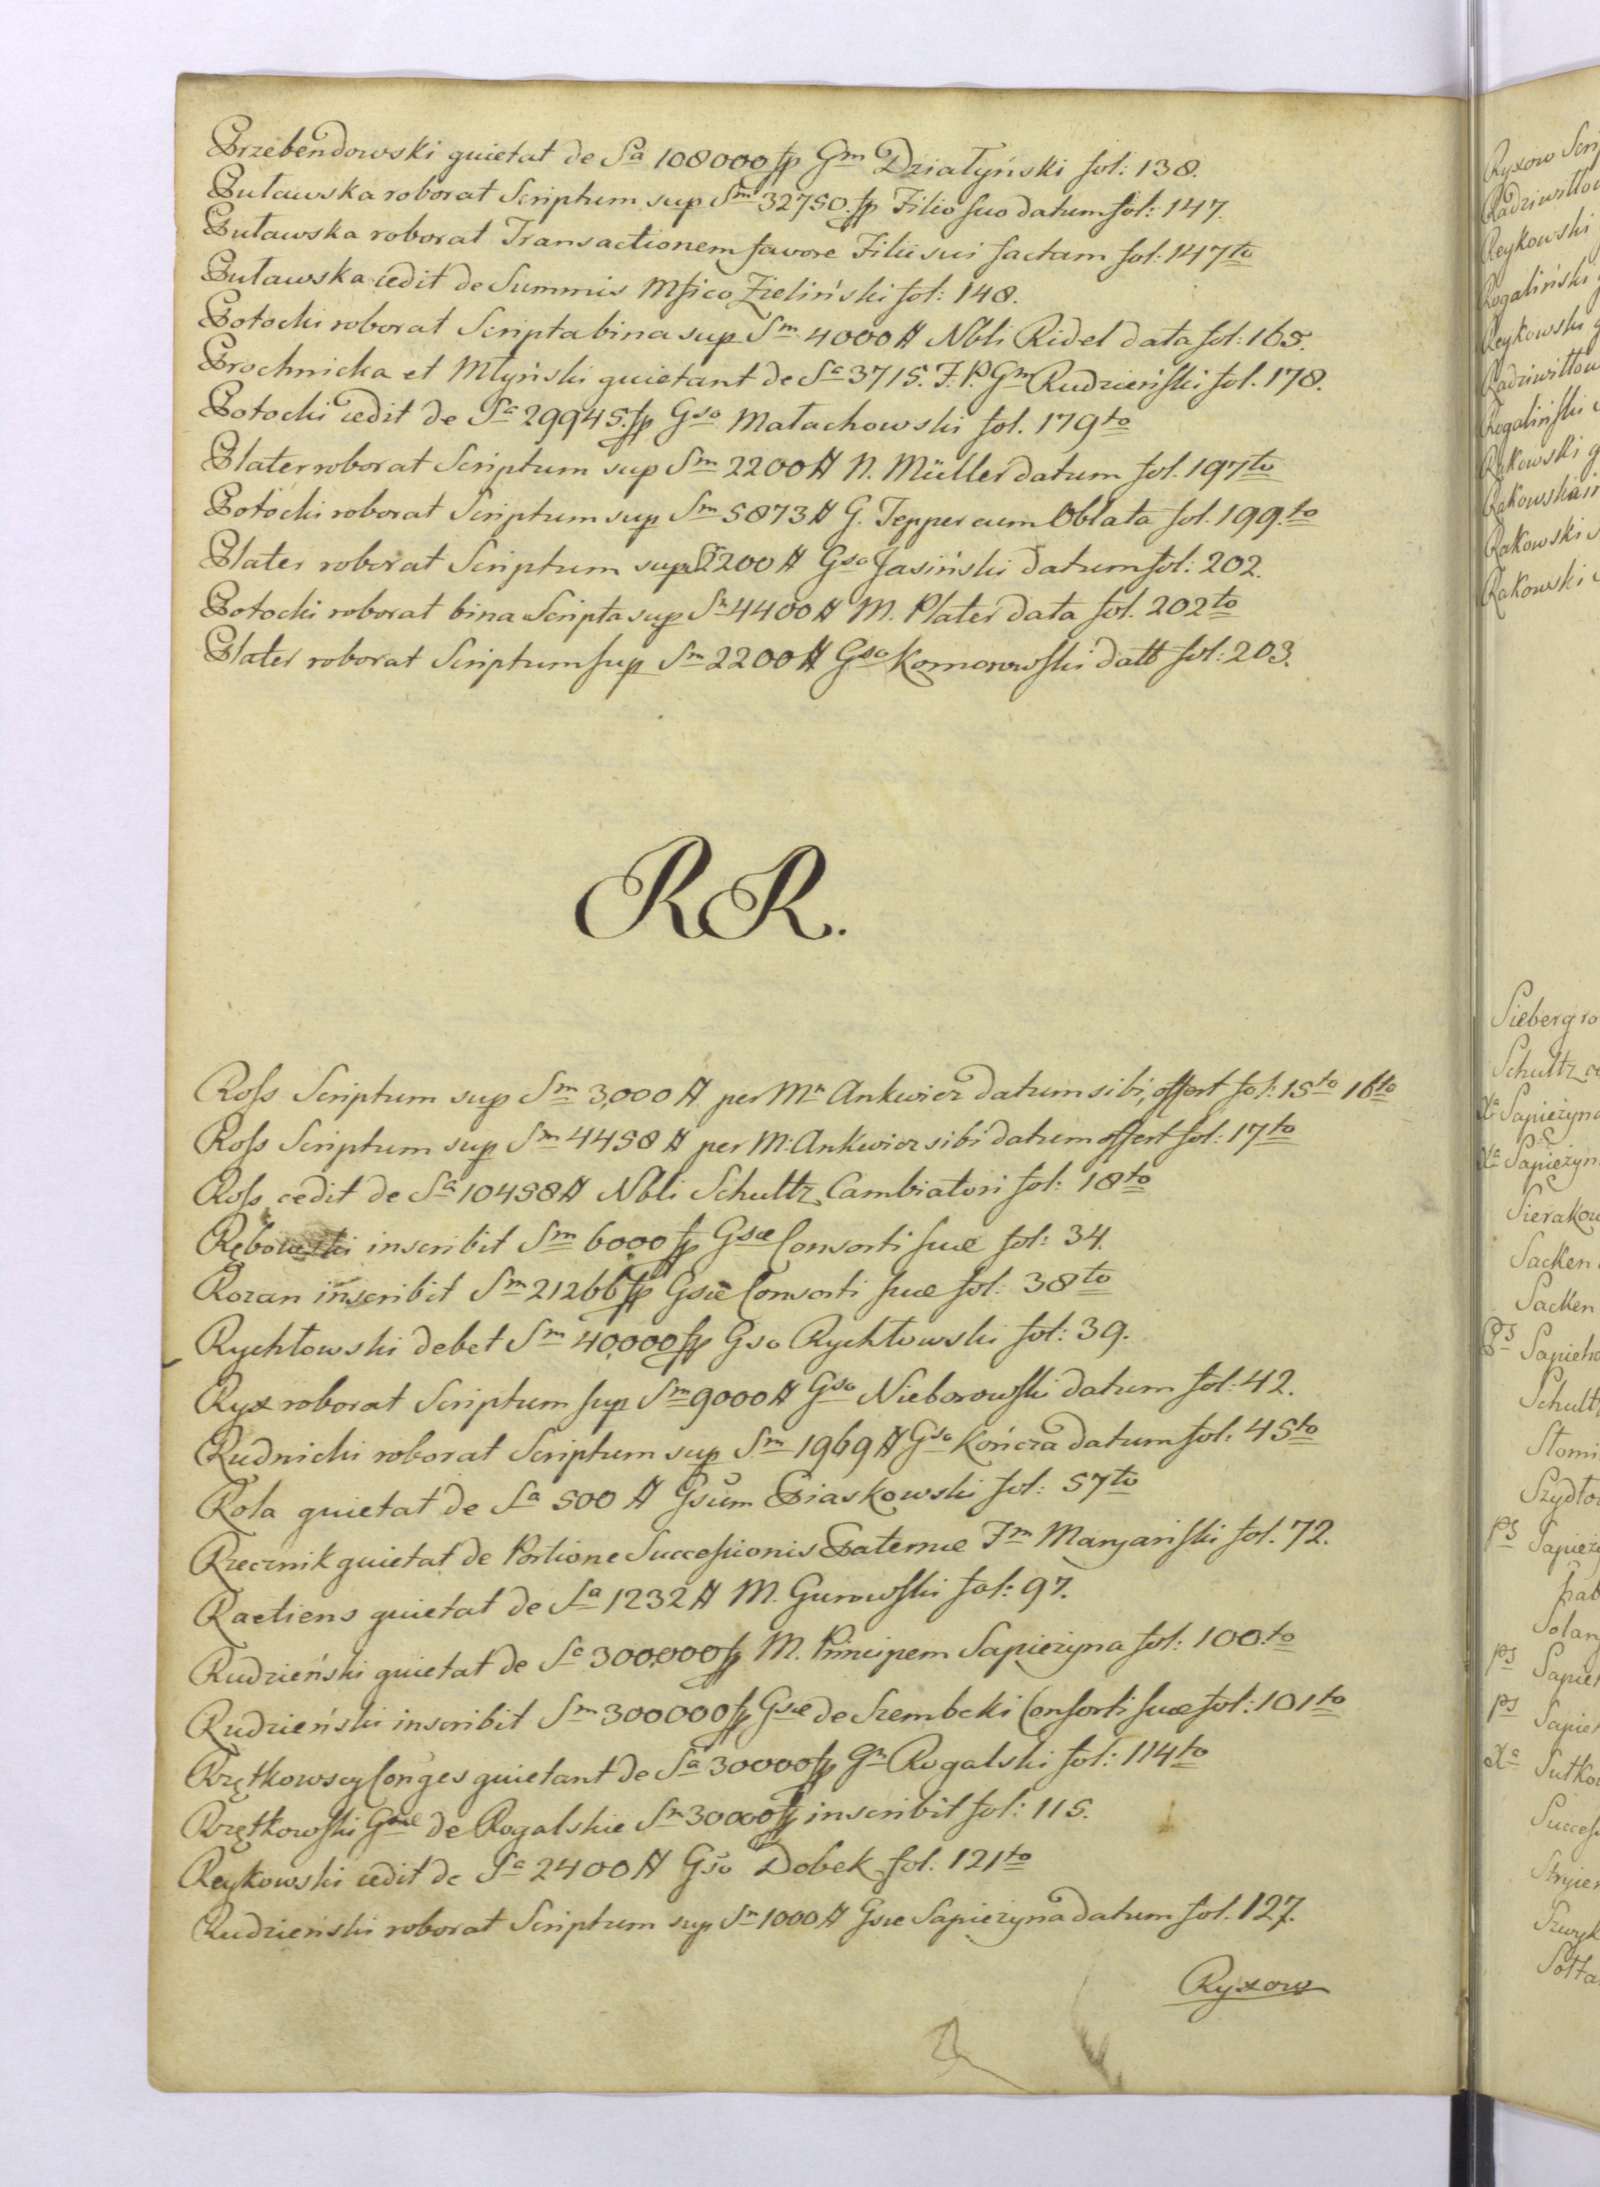 Przebendowski quietat de Sa 108000 fp Gm Działyński fol: 138.
Puławska roborat Scriptum sup Sm 32750. fp Filio suo datum fol: 147.
Puławska roborat Transactionem favore Filii sui factam fol: 147to
Puławska cedit de Summis Mfico Zieliński fol: 148.
Potocki roborat Scripta bina sup Sm 4000 # Nbli Ridel data fol: 165.
Prochnicka et Młyński quietant de Sa 3715. F. P. Gm Rudzieński fol. 178.
Potocki cedit de Sa 29945. fp Gso Małachowski fol. 179to
Plater roborat Scriptum sup Sm 2200 # N. Müller datum fol. 197to
Potocki roborat Scriptum sup Sm 5873 # G. Tepper cum Oblata fol. 199.to
Plater roborat Scriptum sup 2200 # Gso Jasiński datum fol: 202.
Potocki roborat bina Scripta sup Sm 4400 # M. Plater data fol. 202to
Plater roborat Scriptum sup Sm 2200 # Gso Komorowski datt fol: 203.
RR.
Ross Scriptum sup Sm 3,000 # per Mm Ankwicz datum sibi, offert fol: 15to 16to
Ross Scriptum sup Sm 4458 # per M. Ankwicz sibi datum offert fol: 17to
Ross cedit de Sa 10458 # Nbli Schultz Cambiatori fol: 18to
Rębowski inscribit Sm 6000 fp Gsæ Consorti suæ fol: 34.
Rozan inscribit Sm 21266 fp Gsæ Consorti suæ fol: 38to
Rychłowski debet Sm 40,000 fp Gso Rychłowski fol: 39.
Ryx roborat Scriptum sup Sm 9000 # Gso Nieborowski datum fol: 42.
Rudnicki roborat Scriptum sup Sm 1969 # Gso Kończa datum fol: 45to
Rola quietat de Sa 500 # Gsum Piaskowski fol: 57to
Rzecznik quietat de Portione Successionis Paternæ Fm Maryański fol. 72.
Ractiens quietat de Sa 1232 # M. Gurowski fol: 97.
Rudzieński quietat de Sa 300,000 fp M. Principem Sapieżyna fol: 100.to
Rudzieński inscribit Sm 300000 fp Gsæ de Szembeki Consorti suæ fol: 101to
Rzętkowscy Conges quietant de Sa 30000 fp Gm Rogalski fol: 114to
Rzętkowski Gsæ de Rogalskie Sm 30000 fp inscribit fol: 115.
Reykowski cedit de Sa 2400 # Gso Dobek fol. 121to
Rudzieński roborat Scriptum sup Sm 1000 # Gsæ Sapieżyna datum fol. 127.
Ryxow
Ryxow
Reykowski
Rogaliński
Reykowski
Rogaliński
Rakowski
Rakowski
Rakowski
Sieberg
Schultz
Xa Sapieżyna
Xa
Sacken
Sacken
Ps
Ps
Ps
Ps
Xa